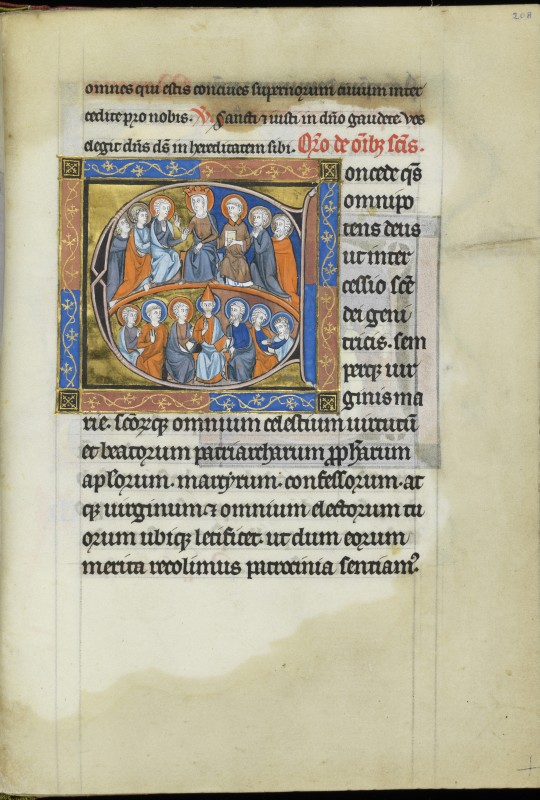 208
omnes qui estis conciues supernorum ciuium inter
cedite pro nobis. V. Sancti ⁊ iusti in dño gaudete. Vos
elegit dñs ds̄ in hereditatem sibi. Oro de oib; scis.
oncede qs
omnipo
tens deus
ut inter
cessio sce
dei geni
tricis. sem
perq; uir
ginis ma
rie. scorq; omnium celestium uirtutū
et beatorum patriarcharum ppharum
apłorum. martyrum. confessorum. at
q; uirginum ⁊ omnium electorum tu
orum ubiq; letificet. ut dum eorum
merita recolimus patrocinia sentiam᾿.